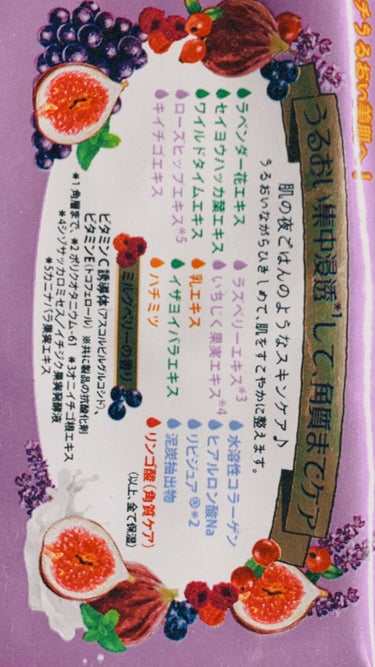 チうるおい美肌へ!
うるおい集中浸透*1して、角質までケア
肌の夜ごはんのようなスキンケア♪
うるおいながらひきしめて、肌をすこやかに整えます。
ラベンダー花エキス
セイヨウハッカ葉エキス
ワイルドタイムエキス
ローズヒップエキス*5
キイチゴエキス
ラズベリーエキス*3
いちじく果実エキス*4
乳エキス
イザヨイバラエキス
ハチミツ
水溶性コラーゲン
ヒアルロン酸Na
リピジュア®*2
泥炭抽出物
リンゴ酸(角質ケア)
(以上、全て保湿)
ミルクベリーの香り
ビタミンC誘導体(アスコルビルグルコシド)、
ビタミンE(トコフェロール) ※共に製品の抗酸化剤
*1 角層まで、*2 ポリクオタニウム-61 *3オニイチゴ根エキス
*4シゾサッカロミセス/イチジク果実発酵液
*5カニナバラ果実エキス